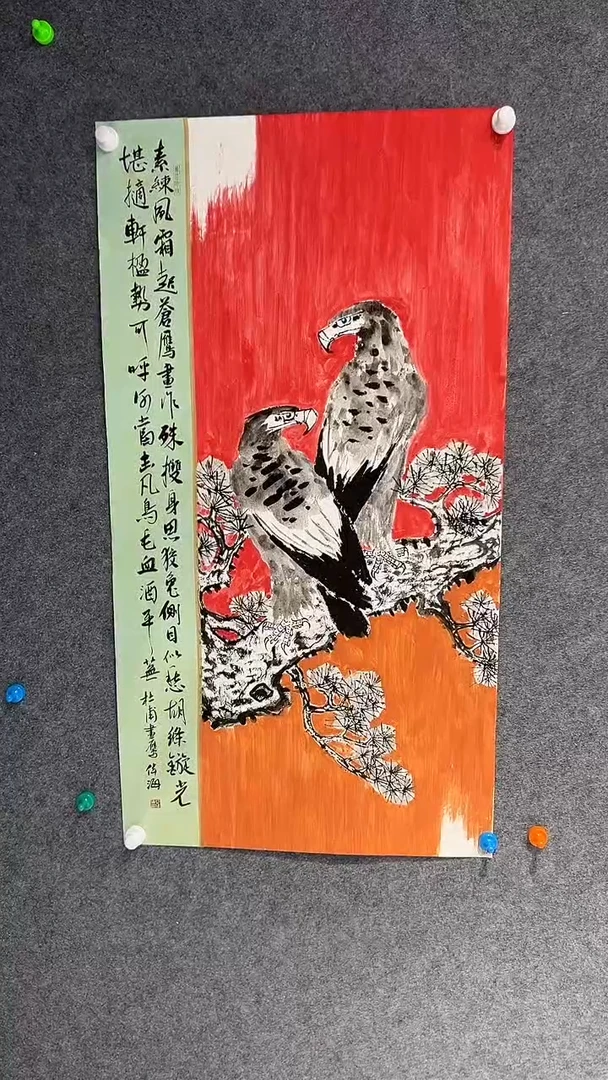 素練風霜起蒼鷹畫作殊㩳身思狡兔側目似愁胡絛鏇光
堪擿軒楹勢可呼何當击凡鳥毛血洒平蕪 杜甫畫鷹